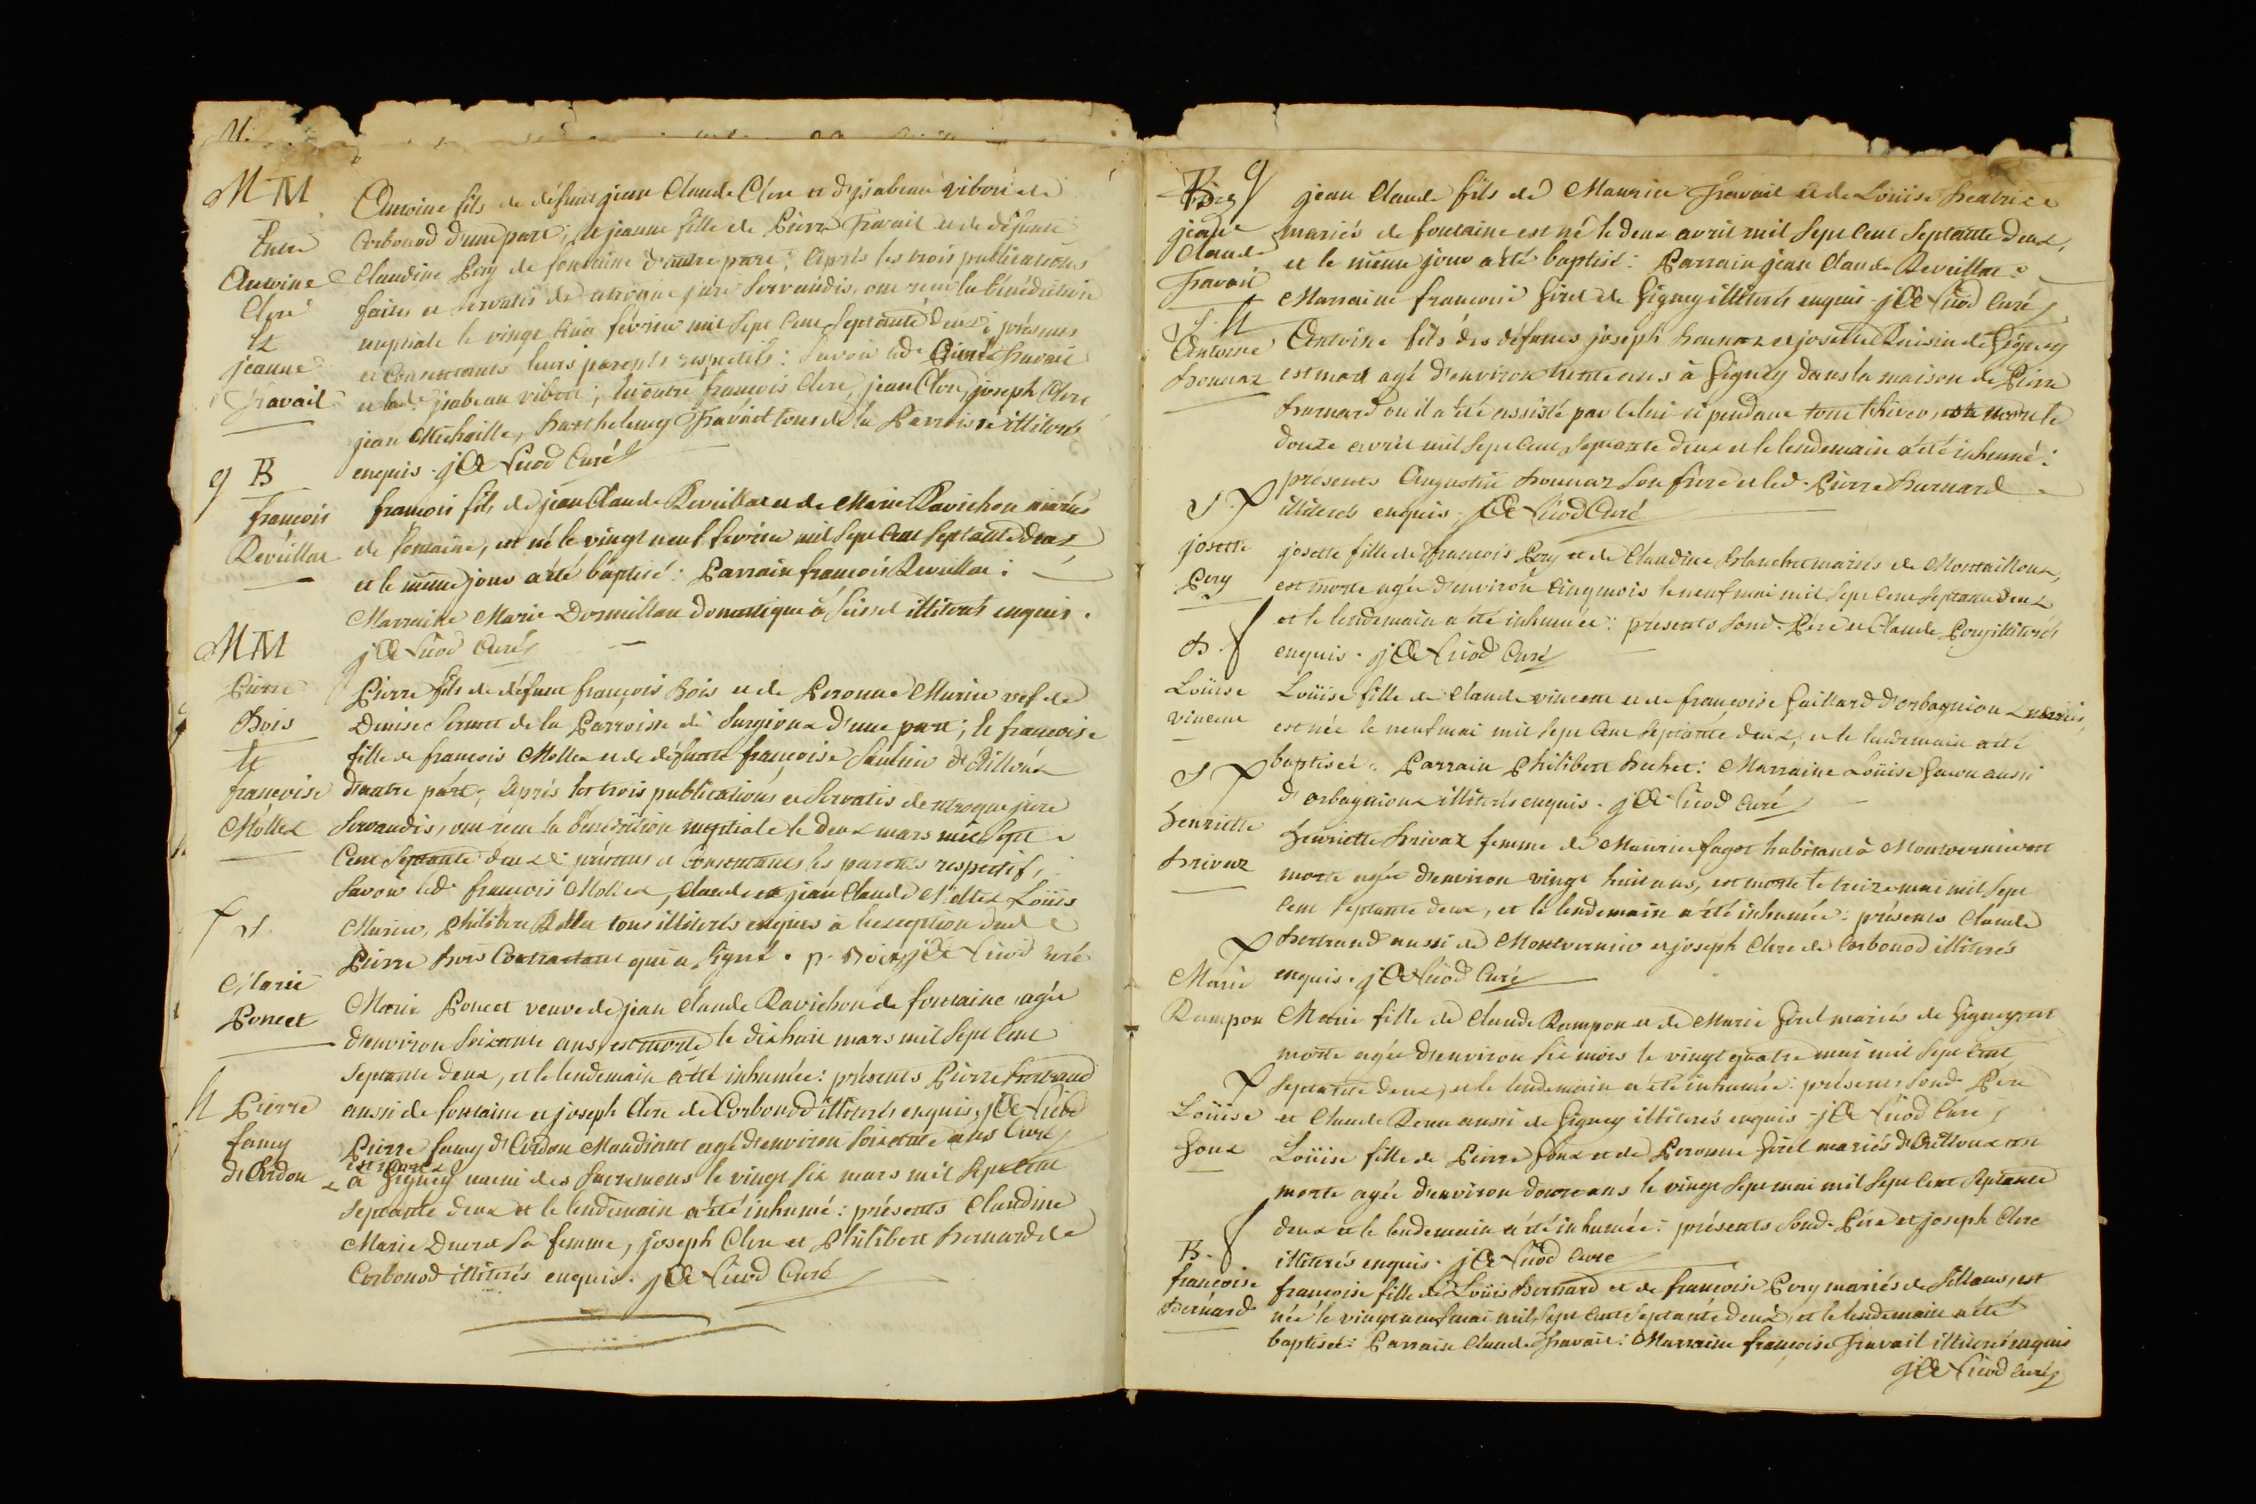 M M
Entre
Antoine
Clerc
Et
jeanne
Travail
Antoine fils de défunt jean Claude Clerc et d'jsabeau vibert de
Corbonod d'une part; et jeanne fille de Pierre Travail et de défunte
Claudine Pery de fontaine d'autre part; Après les trois publications
faites et servatis de utroque jure servandis, ont recu la bénédiction
nuptiale le vingt Cinq février mil sept Cent septante deux; présents
et Consentants leurs parents respectifs: savoir led. Pierre Travail
et lad. jsabeau vibert; en outre françois Clerc, jean Clerc, joseph Clerc
jean Michaille, Barthelemy Travail tous de la Parroisse illiterés
enquis. Curé
9 B
françois
Reveillac
françois fils de jean Claude Reveillac et de Marie Ravichon mariés
de fontaine, est né le vingt neuf fevrier mil sept Cent septante deux
et le même jour a été baptisé: Parrain françois Reveillac:
Marraine Marie Dormillon domestique à seissel illiterés enquis.
Curé
M M
Pierre
Bois
Et
françoise
Mollex
Pierre fils de défunt françois Bois et de Peronne Murier vef de
Denise de la Parroisse de Surgioux d'une part; Et françoise
fille de françois Mollex et de défunte françoise
d'autre part; Après les trois publications et servatis de utroque jure
servandis, ont recu la bénédiction nuptiale le deux mars mil sept
Cent septante deux: présents et Consentants les parents respectif,
savoir led. françois Mollex, Claude et jean Claude Mollex Louïs
Murier, Philibert tous illiterés enquis à l'exception dud.
Pierre Bois Contractant qui a signé. p. Bois Curé
Marie
Poncet
Marie Poncet veuve de jean Claude Ravichon de fontaine agée
d'environ soixante ans, est morte le dix huit mars mil sept Cent
septante deux, et le lendemain a été inhumée: présents Pierre Bertrand
aussi de fontaine et joseph Clerc de Corbonod illiterés enquis.
h Pierre
famy
d'Ordon
Pierre famy d'Ordon Mandiant agé d'environ soixante ans Curé
est mort
à Gigney muni des sacremens le vingt six mars mil sept Cent
septante deux et le lendemain a été inhumé: présents Claudine
Marie sa femme, joseph Clerc et Philibert Bernard de
Corbonod illiterés enquis. Curé
B. 9
jean
Claude
Travail
jean Claude fils de Maurice Travail et de Louïse Beatrice
mariés de fontaine est né le deux avril mil sept Cent septante deux,
et le même jour a été baptisé: Parrain jean Claude Reveillac:
Marraine françoise Girel de Gigney illiterés enquis. Curé
S. h
Antoine
Bonnaz
Antoine fils des défunts joseph Bonnaz et josette Raisin de Gigney
est mort agé d'environ trente ans à Gigney dans la maison de Pierre
Burnard ou il a été assisté par celui ci pendant tout l'hiver, le
douze avril mil sept Cent septante deux et le lendemain a été inhumé:
présents Augustin Bonnaz son frère et led. Pierre Burnard
illiterés enquis. Curé
S.
josette
Pery
josette fille de françois Pery et de Claudine Blanchet mariés de Montailloux,
est morte agée d'environ Cinq mois le neuf mai mil sept Cent septante deux
et le lendemain a été inhumée: présents sond. Père et Claude Pery illiterés
enquis. Curé
B. f
Louïse
vincent
Louïse fille de Claude vincent et de françoise Gaillard d'orbagnioux mariés,
est née le neuf mai mil sept Cent septante deux, et le lendemain a été
baptisée: Parrain Philibert Buchet: Marraine Louïse aussi
d'orbagnioux illiterés enquis. Curé
S
henriette
Brivaz
henriette Brivaz femme de Maurice fagot habitant à Montvernier est
morte agée d'environ vingt huit ans, est morte le treize mai mil sept
Cent septante deux, et le lendemain a été inhumée: présents Claude
Bertrand aussi de Montvernier et joseph Clerc de Corbonod illiterés
enquis. Curé
Marie
Rampon
Marie fille de Claude Rampon et de Marie Girel mariés de Gigney est
morte agée d'environ six mois le vingt quatre mai mil sept Cent
septante deux, et le lendemain a été inhumée: présents sond. Père
et Claude aussi de Gigney illiterés enquis. Curé
Louïse
Goux
Louïse fille de Pierre Goux et de Peronne Girel mariés est
morte agée d'environ douze ans le vingt sept mai mil sept Cent septante
deux et le lendemain a été inhumée: présents sond. Père et joseph Clerc
illiterés enquis. Curé
B. f
françoise
Bernard
françoise fille de Louïs Bernard et de françoise Pery mariés de sillans, est
née le vingt neuf mai mil sept Cent septante deux, et le lendemain a été
baptisée: Parrain Claude Travail: Marraine françoise Travail illiterés enquis
Curé